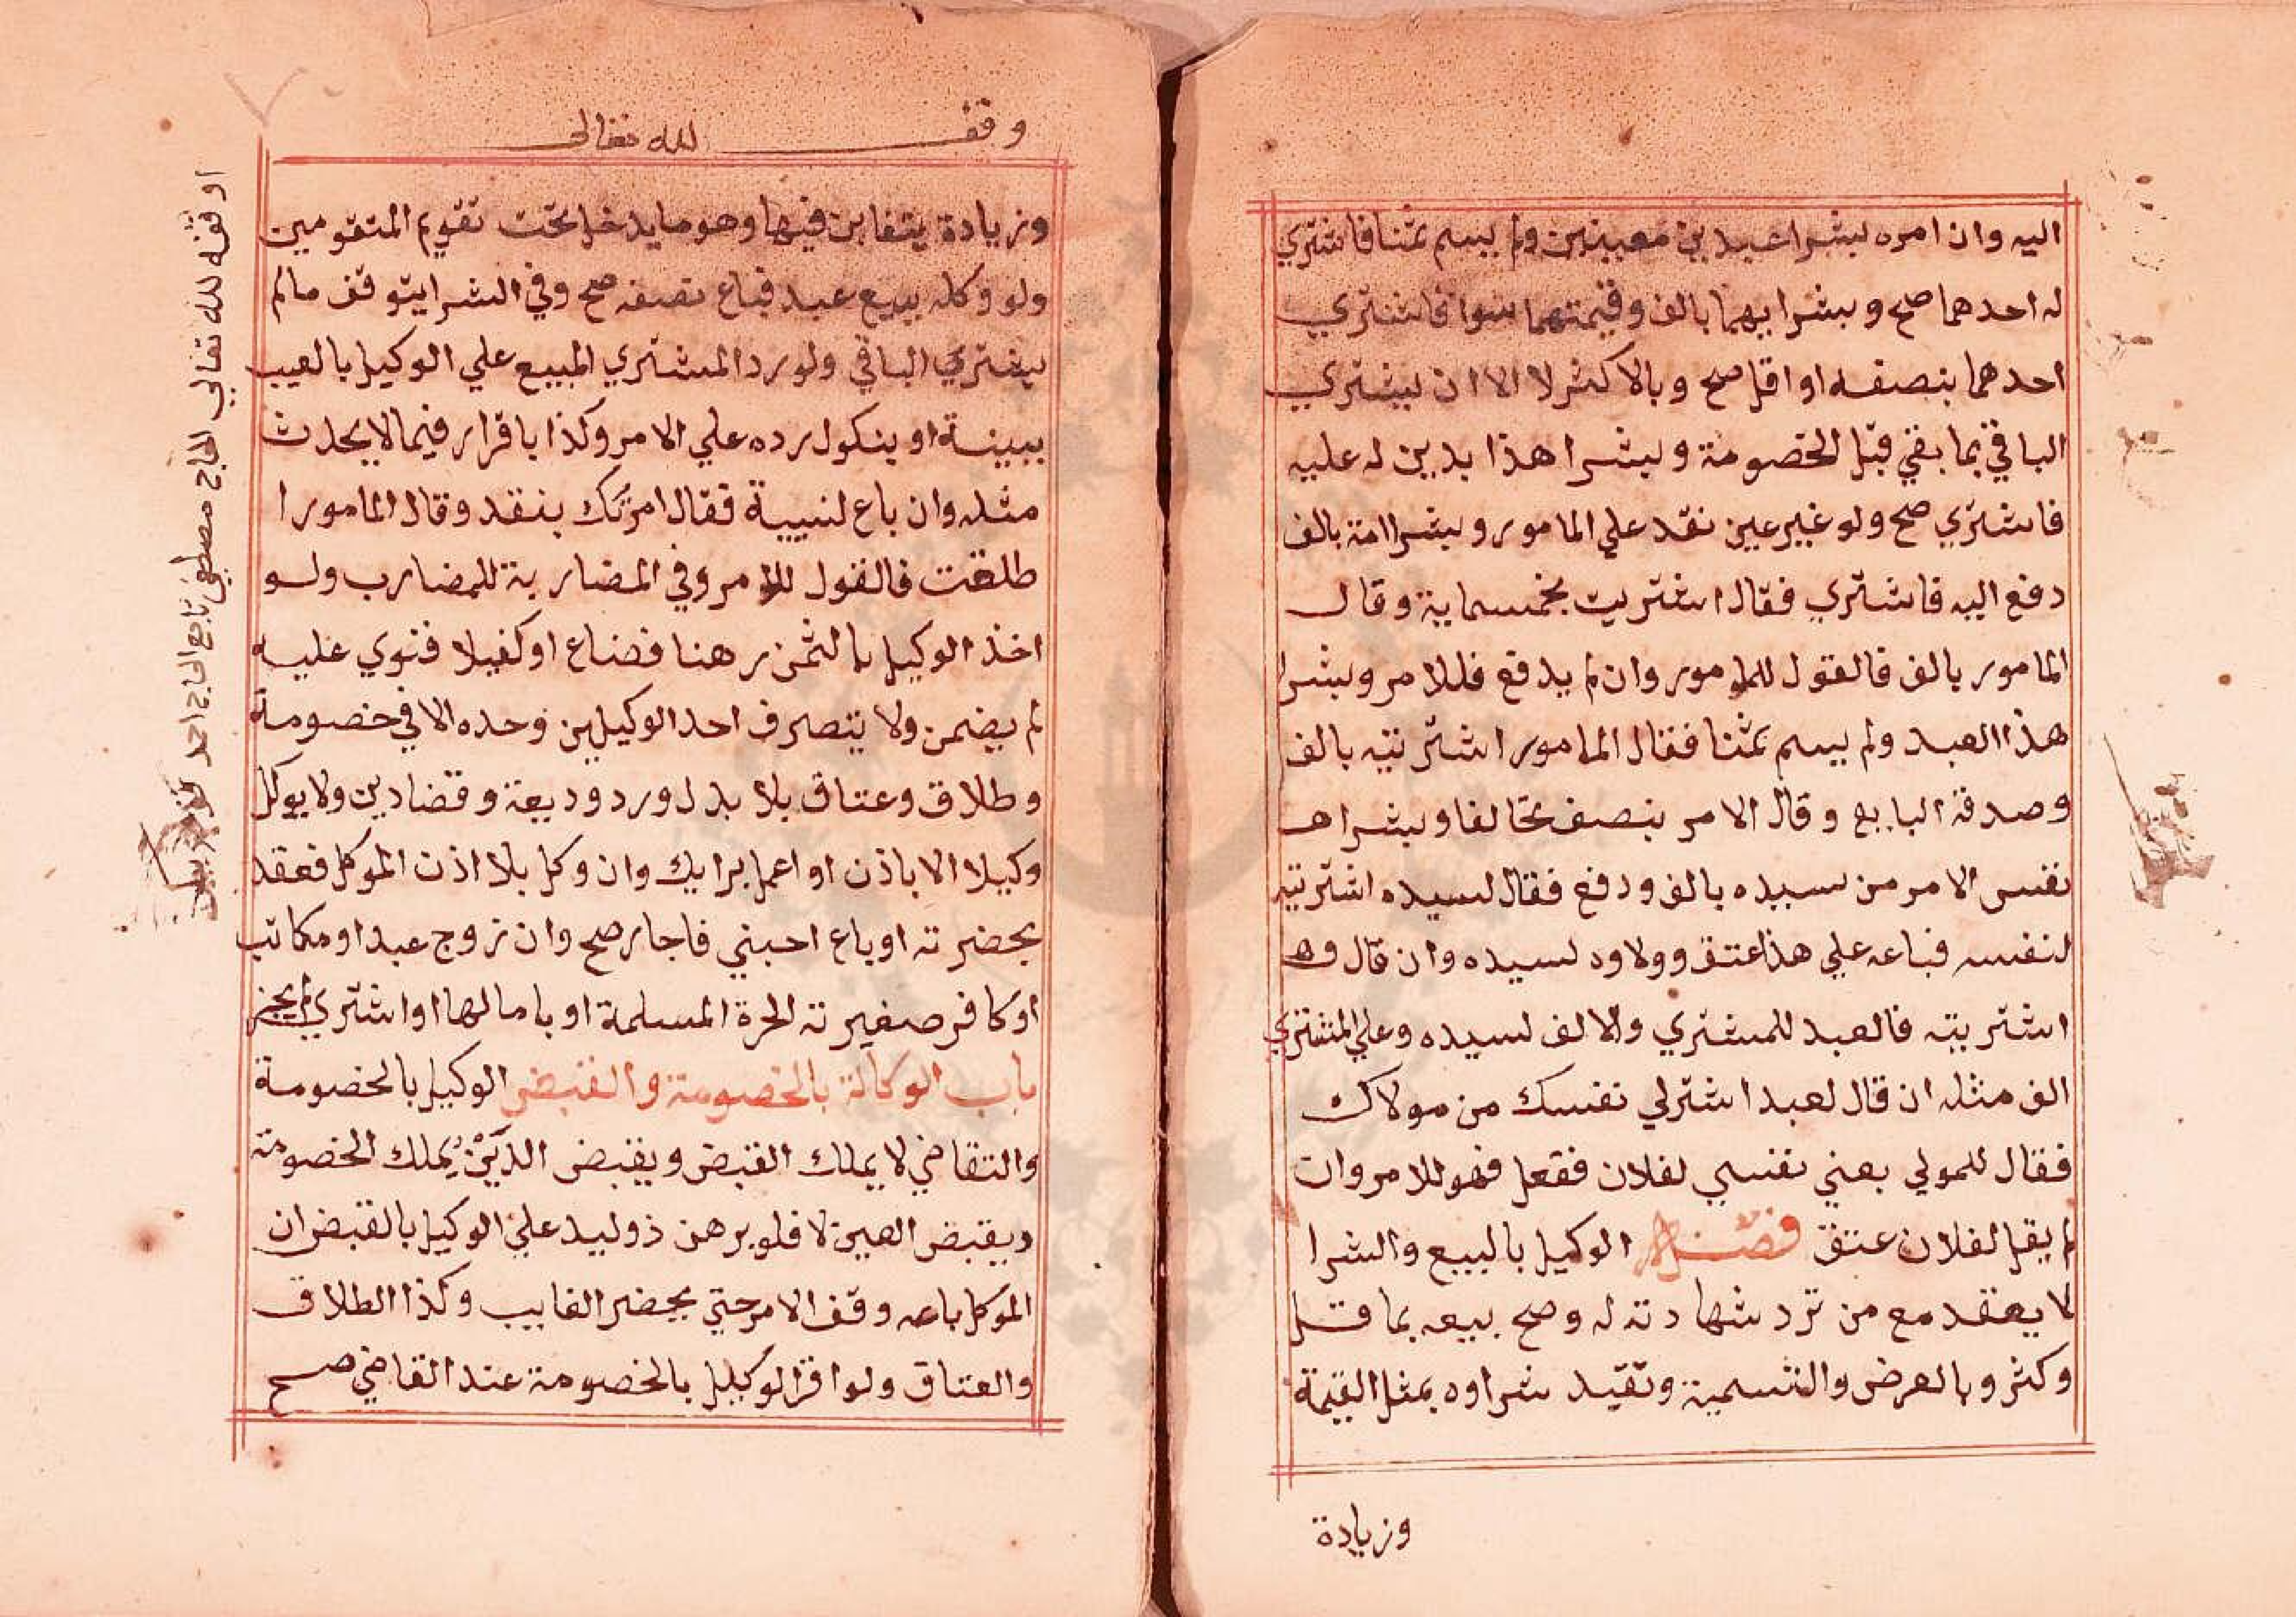 اليه وان امره بشرا عبدين معينين ولم يسم ثمنا فاشتري
له احدهما صح وبشرايهما بالف وقيمتهما سوا فاشتري
احدهما بنصفه او اقل صح وبالاكثر لا الا ان يشتري
الباقي بما بقي قبل الخصومة وبشرا هذا بدين له عليه
فاشتري صح ولو غير عين نقد علي المامور وبشرا امة بالف
دفع اليه فاشتري فقال اشتريت بخمسماية وقال
المامور بالف فالقول للمامور وان لم يدفع فللامر وبشرا
هذا العبد ولم يسم ثمنا فقال المامور اشتريته بالف
وصدقه البايع وقال الامر بنصف تحالفا وبشرا
نفس الامر من سيده بالف ودفع فقال لسيده اشتريته
لنفسه فباعه علي هذا عتق وولاوه لسيده وان قال
اشتريته فالعبد للمشتري والالف لسيده وعلي المشتري
الف مثله ان قال لعبد اشتر لي نفسك من مولاك
فقال للمولي بعني نفسي لفلان ففعل فهو للامر وان
لم يقل لفلان عتق فصل الوكيل بالبيع والشرا
لا يعقد مع من ترد شهادته له وصح بيعه بما قل
وكثر وبالعرض والنسية وتقيد شراوه بمثل القيمة
وزيادة
وقف لله تعالى
وزيادة يتغابن فيها وهو ما يدخل تحت تقويم المتقومين
ولو وكله ببيع عبد فباع نصفه صح وفي الشرا يتوقف مالم
يشتري الباقي ولو رد المشتري المبيع علي الوكيل بالعيب
ببينة او بنكول رده علي الامر وكذا باقرار فيما لا يحدث
مثله وان باع لنسيية فقال امرتك بنقد وقال المامور ا
طلقت فالقول للامر وفي المضاربة للمضارب ولو
اخذ الوكيل بالثمن رهنا فضاع او كفيلا فتوي عليه
لم يضمن ولا يتصرف احد الوكيلين وحده الا في خصومة
وطلاق وعتاق بلا بدل ورد وديعة وقضا دين ولا يوكل
وكيلا الا باذن او اعمل برايك وان وكل بلا اذن الموكل فعقد
بحضرته او باع اجبني فاجاز صح وان زوج عبد او مكاتب
او كافر صغيرته الحرة المسلمة او باع مالها او اشتري لم يجز
باب الوكالة بالخصومة والقبض الوكيل بالخصومة
والتقاضي لا يملك القبض وبقبض الدين يملك الخصومة
وبقبض العين لا فلو برهن ذو اليد علي الوكيل بالقبض ان
الموكل باعه وقف الامر حتي يحضر الغايب وكذا الطلاق
والعتاق ولو اقر الوكيل بالخصومة عند القاضي صح
اوقفه لله تعالي الحاج مصطفي تابع الحاج احمد